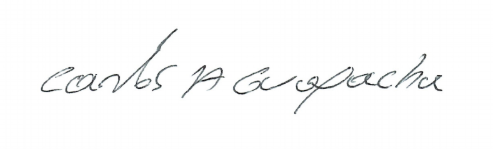 Carlos A Guapacha